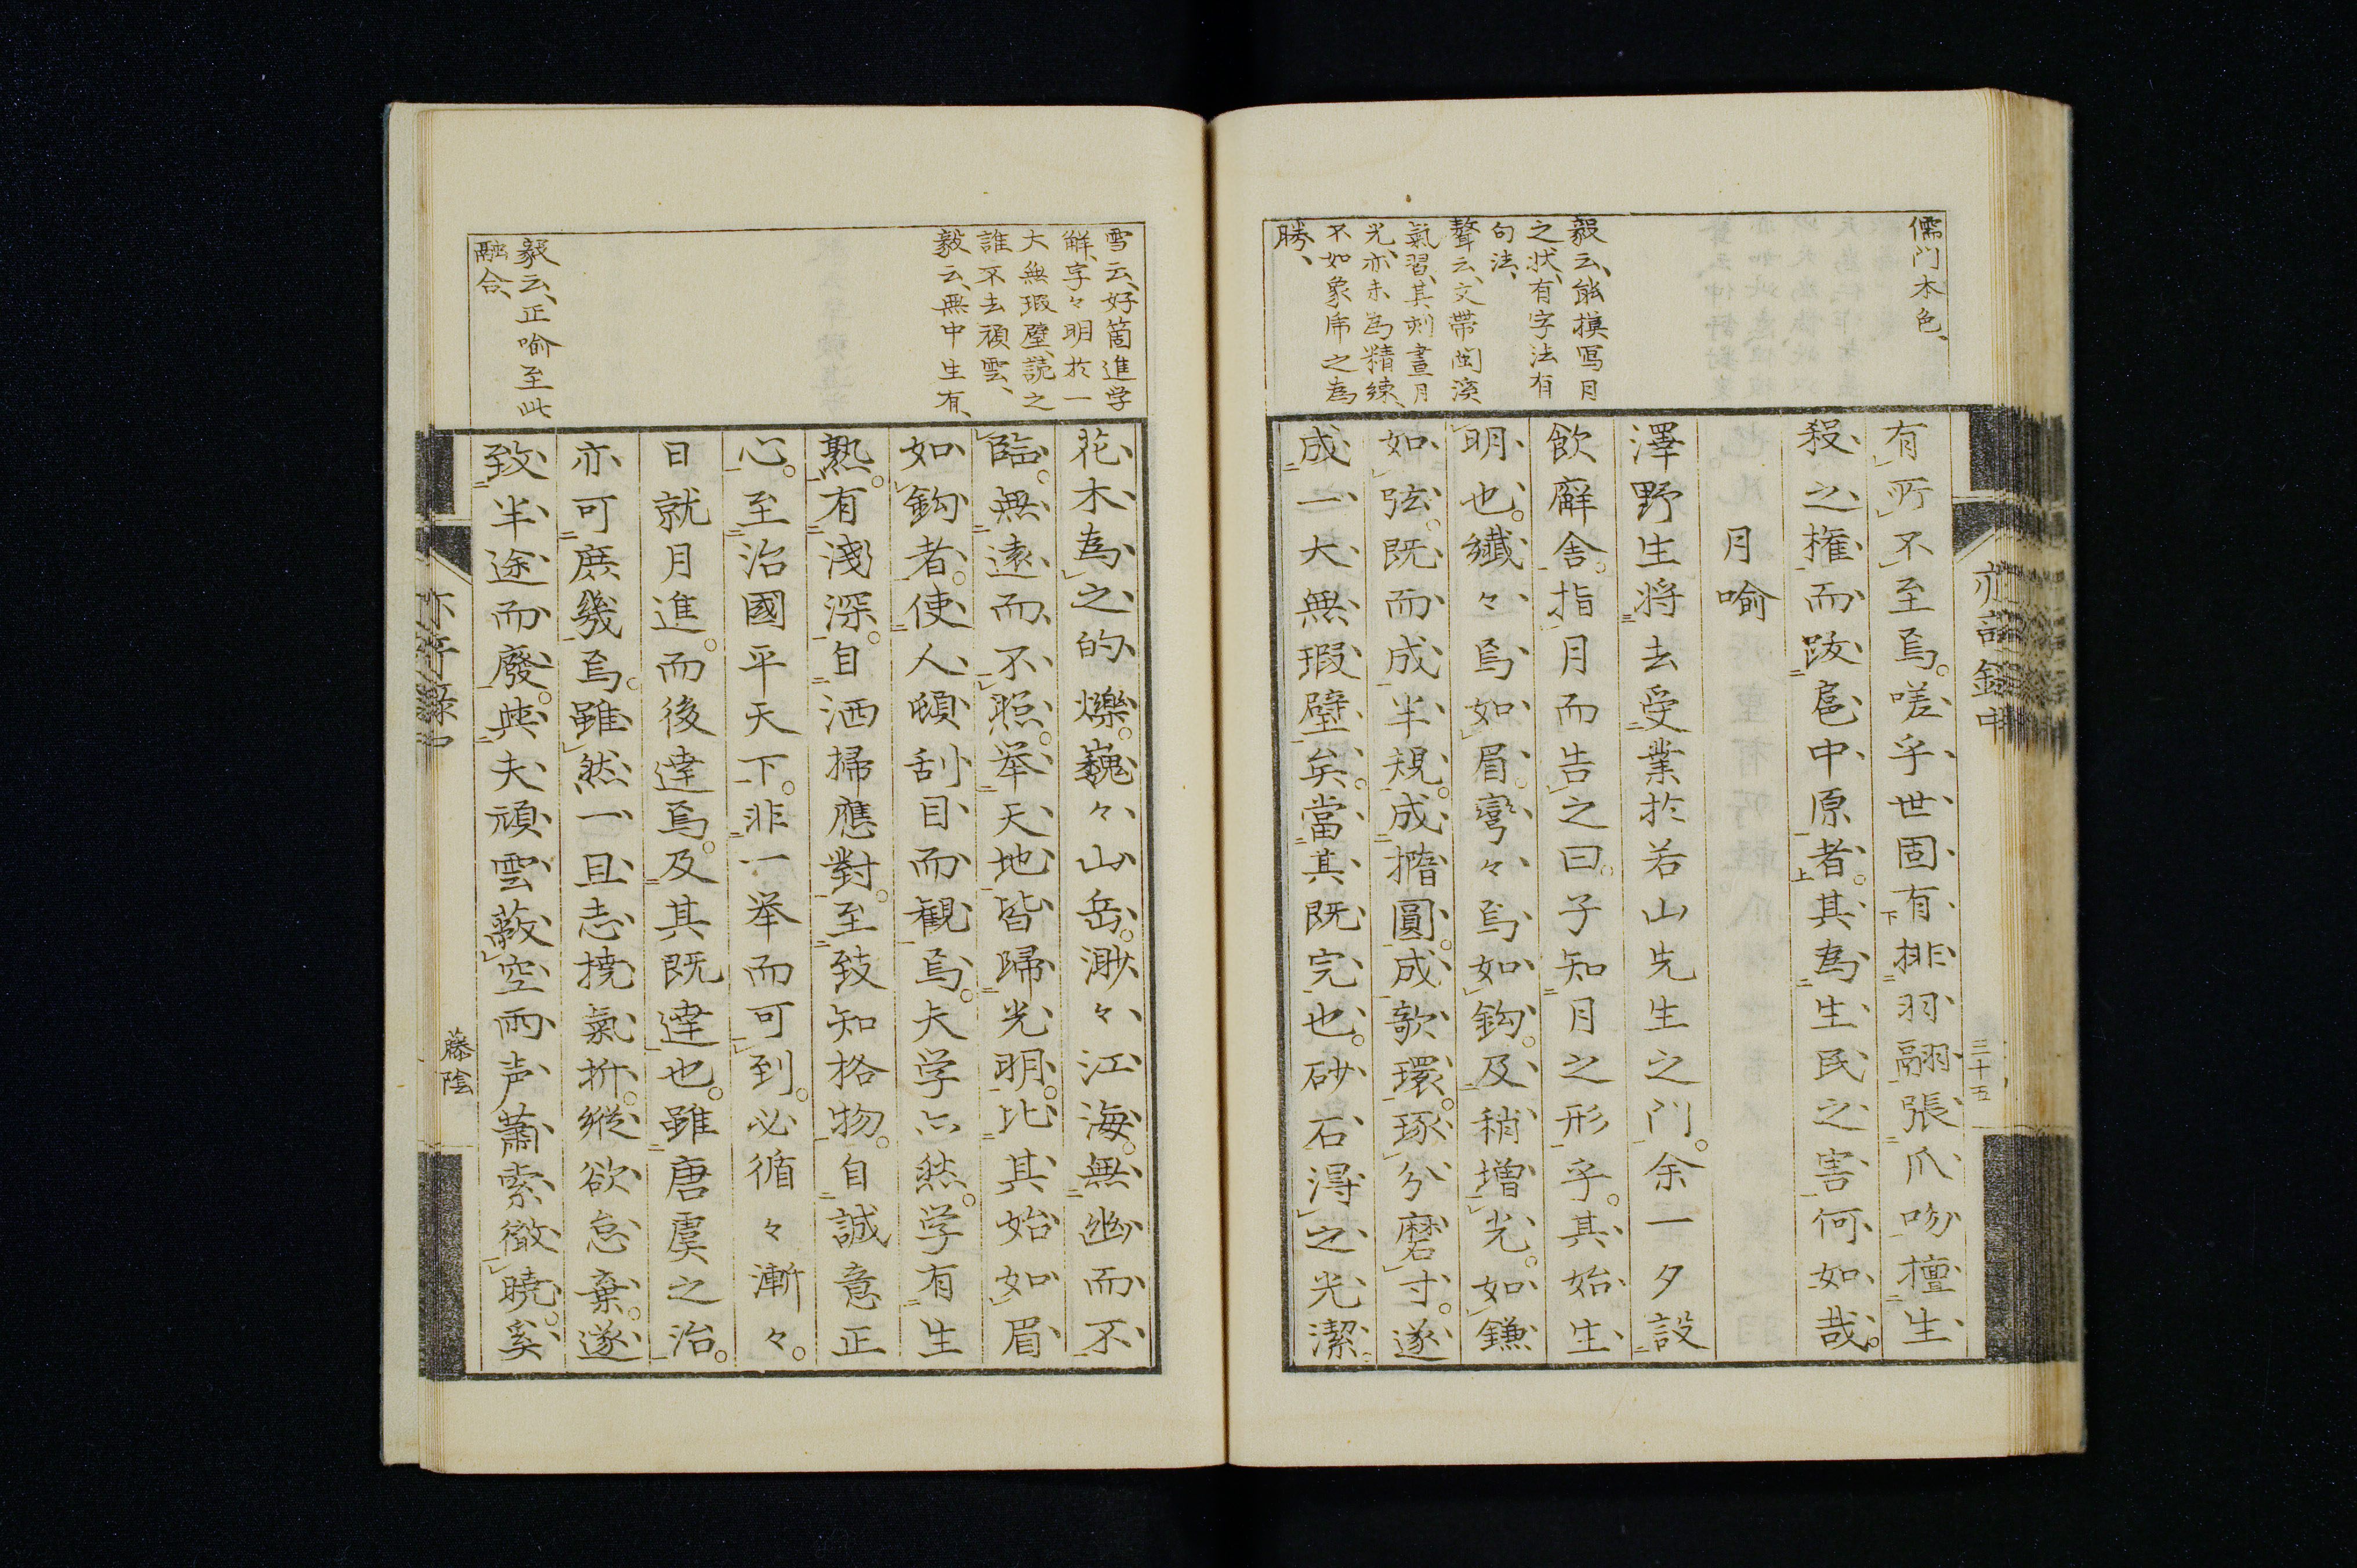 儒門本色、
毅云、能摸写月
之状、有字法有
句法、
聱云、文帯閩溪
氣習、其刻畫月
光、亦未為精練、
不如象席之為
勝、
有所不至焉。嗟乎世固有排羽翮張爪吻擅生
殺之権而跋扈中原者。其為生民之害何如哉。
月喻
澤野生将去受業於若山先生之門。余一夕設
飲廨舍。指月而告之曰。子知月之形乎。其始生
明也。纖々焉如眉。彎々焉如鈎。及稍増光。如鎌
如弦。既而成半規。成撱圓。成歌環。琢分磨寸。遂
成一大無瑕璧矣。當其既完也。砂石得之光潔。
三十五
雪云、好箇進学
觧、字々明於一
大無瑕璧、読之
誰不去頑雲、
毅云、無中生有、
毅云、正喻至此
融合、
花木為之的爍。巍々山岳。渺々江海。無幽而不
臨。無遠而不照。举天地皆歸光明。比其始如眉
如鈎者。使人頓刮目而観焉。夫学亦然。学有生
熟。有淺深。自洒掃應對。至致知格物。自誠意正
心。至治國平天下。非一举而可到。必循々漸々。
日就月進。而後達焉。及其既達也。雖唐虞之治。
亦可庶幾焉。雖然一旦志撓氣折。縦欲怠棄。遂
致半途而廢。與夫頑雲蔽空雨声蕭索徹曉。奚
藤陰